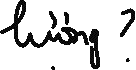 hướng ?